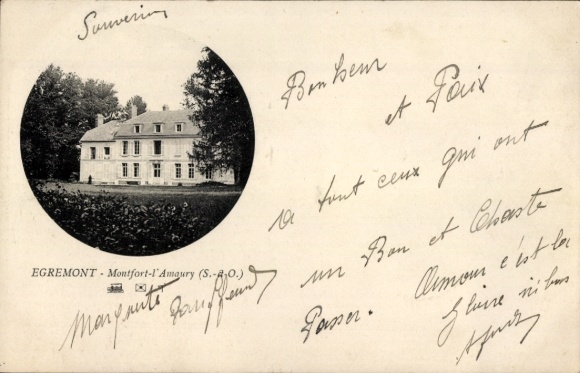 Souvenir
Bonheur
et Paix
a tout ceux qui ont
un Bon et Chaste
Passer.
Amour c'est la
Gloire
EGREMONT - Montfort-l'Amaury (S.-&-O.)
Marguerite